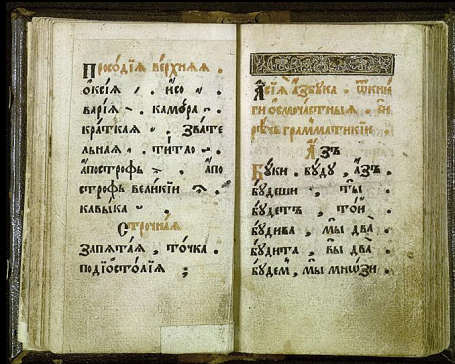 Просѡ́дїѧ ве́рхнѧѧ .
ѻ҆ксі́ѧ . и҆со .
варі́ѧ . камо́ра .
кра́ткаѧ . зва́те
льнаѧ . ти́тло .
а҆по́строфь . а҆по
строфь вели́кїи .
кавы́ка .
Стро́чнаѧ
запѧта́ѧ , то́чка .
подїѡсто́лїѧ ;
а҆́збука .
ги ѻ҆смоча́стныѧ .
грамма́тикїи .
А҆́зъ
Бꙋ́ки . бꙋ́дꙋ , а҆́зъ .
бꙋ́деши , ты̀ .
бꙋ́детъ , то́й .
бꙋ́дива , мы̀ два̀ .
бꙋ́дита , вы̀ два̀ .
бꙋ́демъ , мы̀ мно́зи .